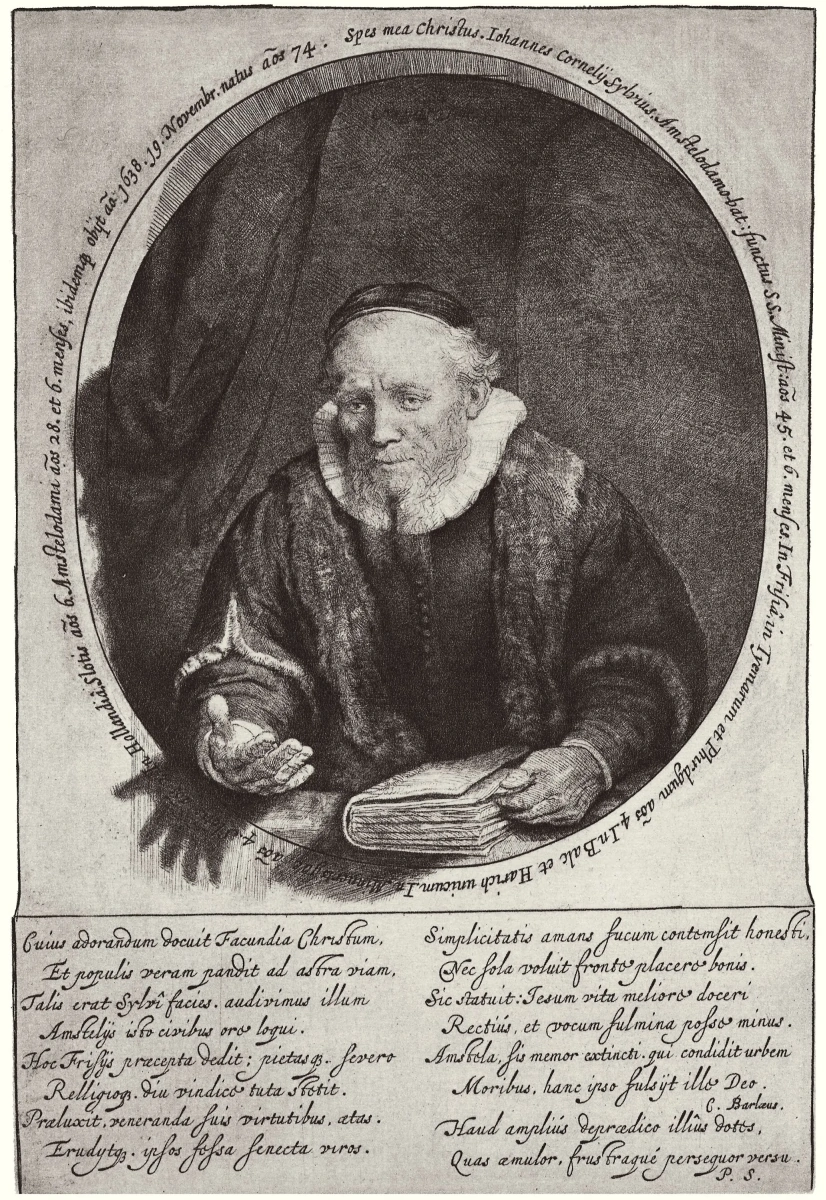 Spes mea Christus. Iohannes Cornelÿ Sylvius, Amstelodamobat: functus S.S. Minist: aõs 45. et 6. menses. In Frisiâ in Tyemarum et Phirdgum aõs 4 In Balc et Harich unicum. In aõs 4 In Hollandiâ Slotis aõs 6. Amstelodami aõs 28. et 6. menses, ibidemq₃ obÿt aõ. 1638. 19. Novembr. natus aõs 74.
Cuius adorandum docuit Facundia Christum,
Et populis veram pandit ad astra viam,
Talis erat Sylvî facies. audivimus illum
Amstelÿs isto civibus ore loqui.
Hoc Frisÿs præcepta dedit; pietasq₃. severo
Relligioq₃. diu vindice tuta stetit.
Præluxit, veneranda suis virtutibus, ætas.
Erudytq₃. ipsos fessa senecta viros.
Simplicitatis amans fucum contemsit honesti,
Nec sola voluit fronte placere bonis.
Sic statuit: Iesum vita meliore doceri
Rectiùs, et vocum fulmina posse minus.
Amstela, sis memor extincti. qui condidit urbem
Moribus, hanc ipso fulsÿt ille Deo.
C. Barlæus.
Haud ampliús deprædico illiûs dotes,
Quas æmulor, frustraquè persequor versu.
P. S.